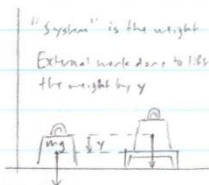 "System" is the weight
External work done to lift
the weight by y
mg
y